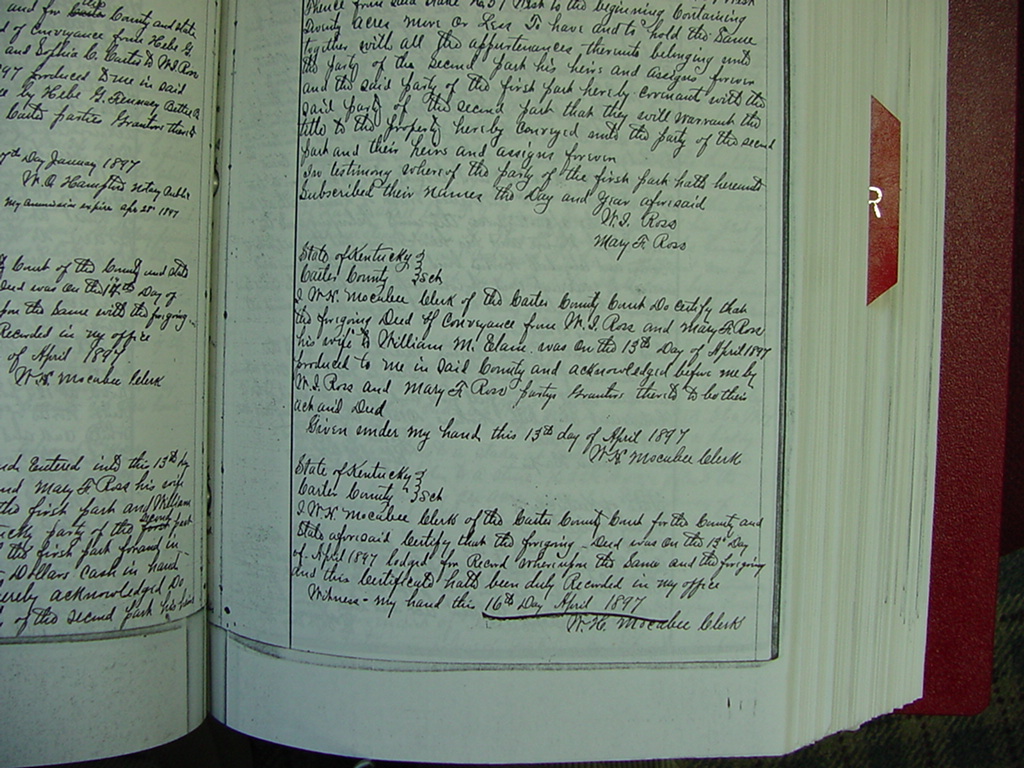 and for County and state
d of conveyance from Hebe G.
and Sophia C. Carter to W.I. Ross
97 produced to me in said
ce by Hebe G.
Carter parties Grantors thereto
7th Day January 1897
W. A. Hampton Notary Public
my commission expire apr 28th 1897
y Court of the County and state
Deed was on the 14th Day of
upon the Same with the forgoing
Recorded in my office
of April 1897
W.H. Mocabee Clerk
nd Entered into this 13th by
and Mary F Ross his wife
the first part and William
tucky party of the second part
the first part for and in
Dollars cash in hand
ereby acknowledged Do
of the second part his heirs
Thence from said to the beginning Containing
Twenty acres more or Less To have and to hold the Same
together with all the appurtenances thereunto belonging unto
the party of the Second part his heirs and assigns forever
and the said party of the first part hereby covenant with the
said party of the second part that they will warrant the
title to the property hereby conveyed unto the party of the second
part and their heirs and assigns forever
In testimony whereof the party of the first part hath hereunto
Subscribed their names the Day and year aforesaid
W. I. Ross
Mary F. Ross
State of Kentucky }
Carter County } Sct
I W.H. Mocabee Clerk of the Carter County Court Do certify that
the forgoing Deed of Conveyance from W. I. Ross and Mary F. Ross
his wife to William M. was on the 13th Day of April 1897
produced to me in said County and acknowledged before me by
W. I. Ross and Mary F. Ross partys Grantors thereto to be their
act and Deed
Given under my hand this 13th day of April 1897
W.H. Mocabee Clerk
State of Kentucky }
Carter County } Sct
I W.H. Mocabee Clerk of the Carter County Court for the County and
State aforesaid Certify that the forgoing Deed was on the 13th Day
of April 1897 lodged for Record whereupon the Same and the forgoing
and this Certificate hath been duly Recorded in my office
Witness my hand this 16th Day April 1897
W. H. Mocabee Clerk
R